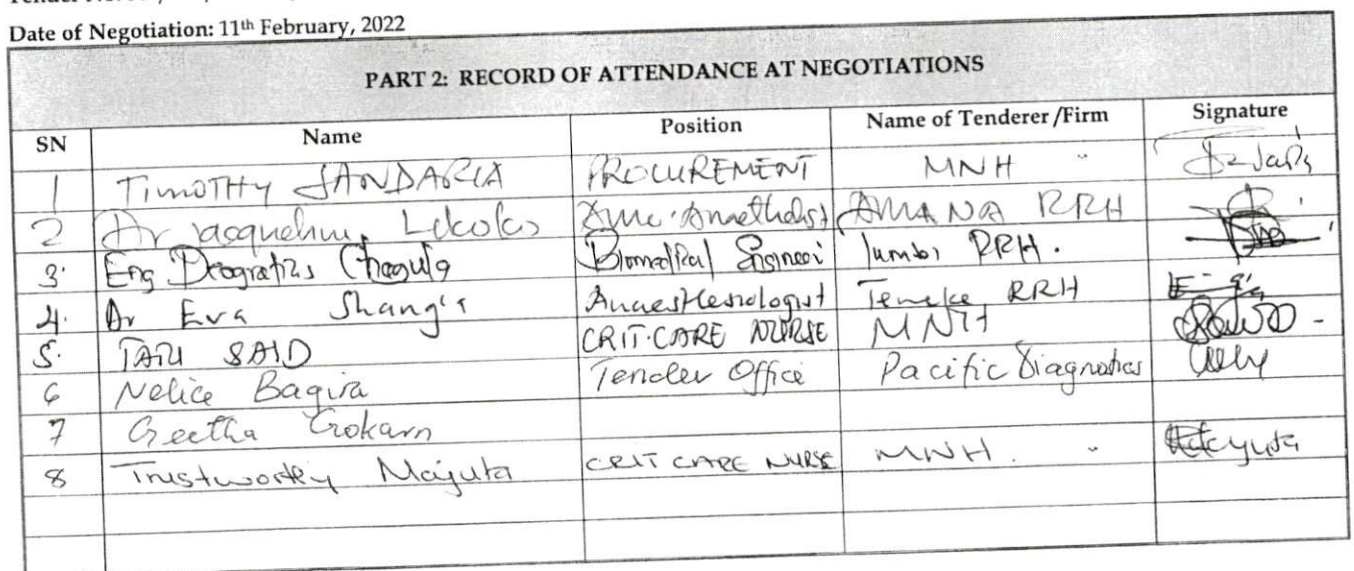 Date of Negotiation: 11th February, 2022
PART 2: RECORD OF ATTENDANCE AT NEGOTIATIONS
SN Name Position Name of Tenderer/Firm Signature
1 TIMOTHY SANDARIA PROCUREMENT MNH "
2 Dr Jacqueline AMANA RRH
3. Eng Deogratias Chagula Biomedical Engineer Tumbi RRH.
4. Dr Eva Shang'a Anaesthesiologist Temeke RRH
5. TATU SAID CRIT.CARE NURSE MNH
6 Nelice Bagira Tender Office Pacific Diagnostics
7 Geetha Gokarn
8 Trustworthy Majuta CRIT CARE NURSE MNH. "